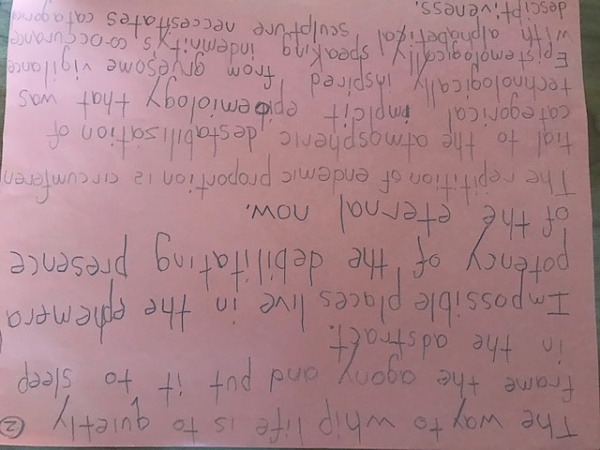 The way to whip life is to quietly 2
frame the agony and put it to sleep
in the adstract.
Impossible places live in the ephemera
potency of the debilitating presence
of the eternal now.
The repitition of endemic proportion is circumferen
tial to the atmospheric destabilization of
categorical implicit epidemiology that was
technologically inspired from gryesome vigilance
Epistemologically speaking indemnity's co-ocqurance
with alphabetical sculpture neccesitates
desciptiveness.